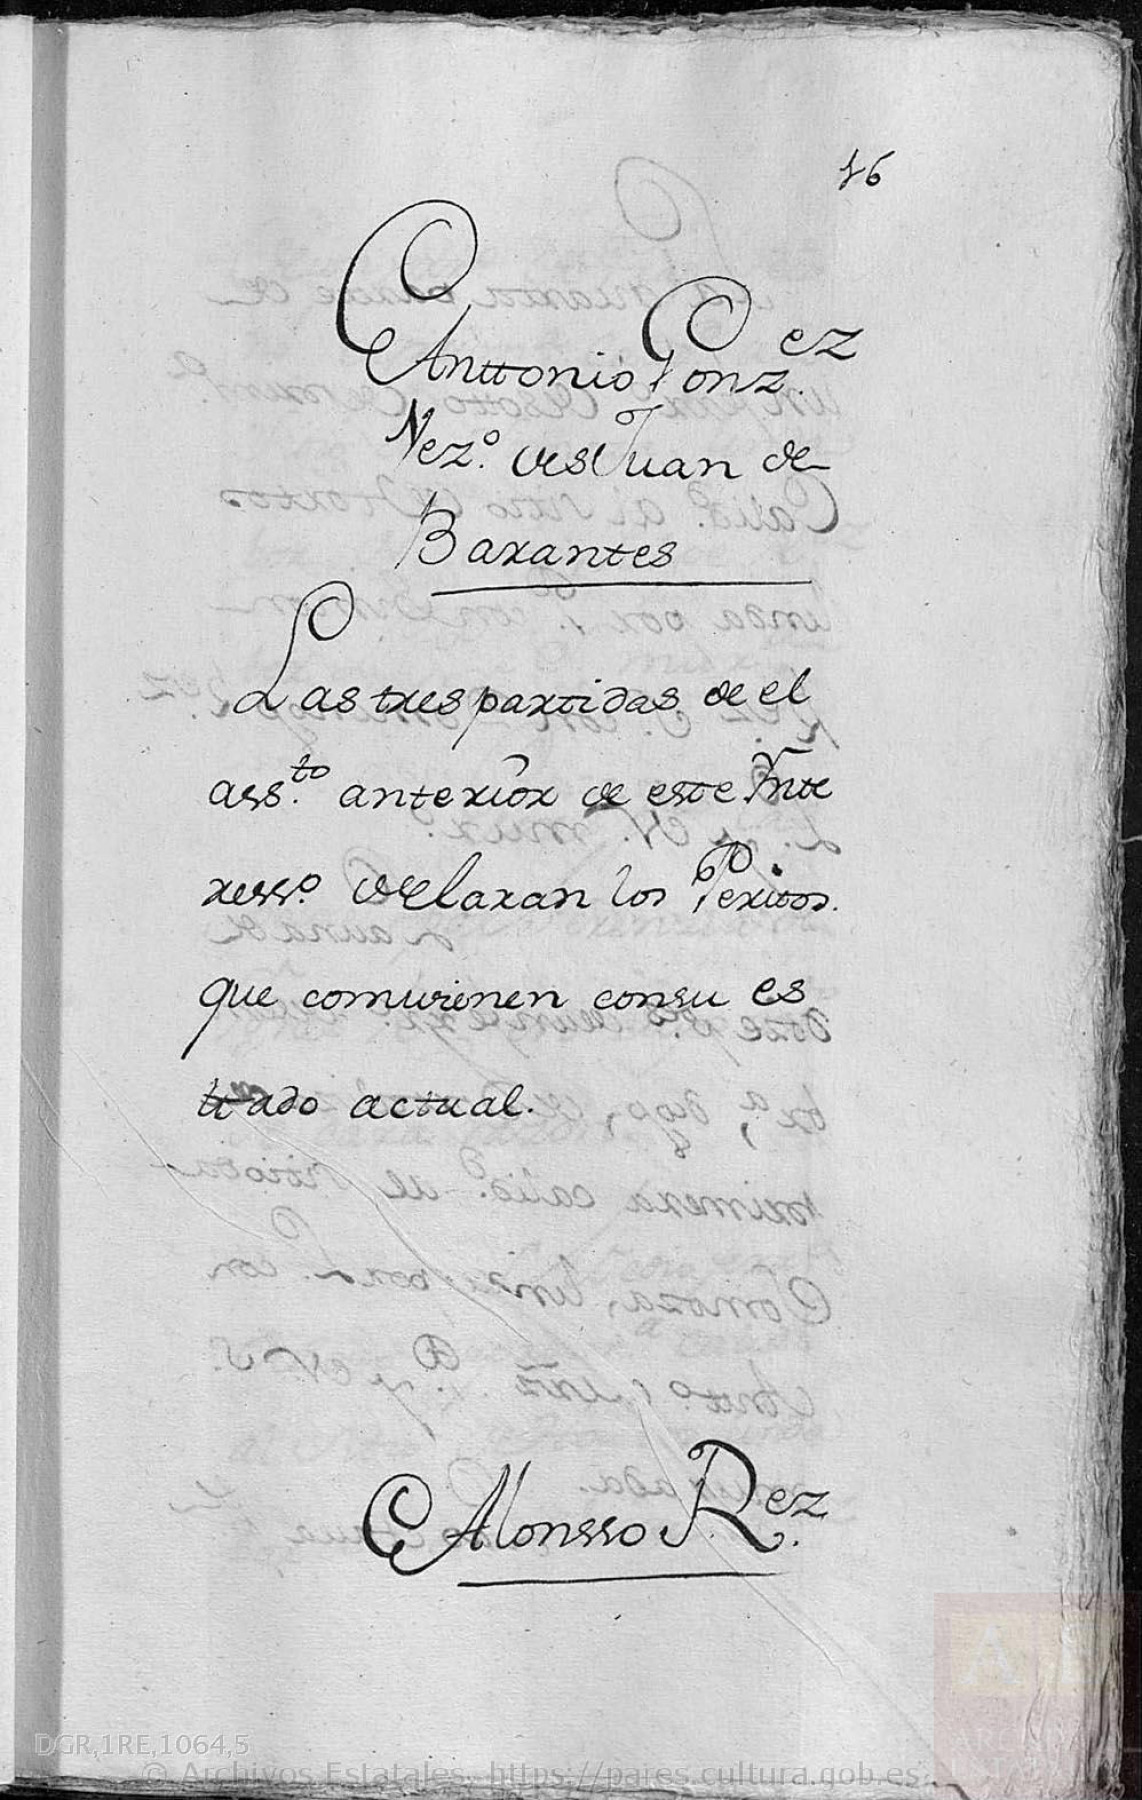 16
Anttonio Gonz.ez
Vez.º de S Juan de
Barantes
Las tres partidas de el
ass.to anterior de este Ynte
resso.º declaran los Peritos.
que combienen con su es
ttado actual.
Alonsso R.ez
DGR,1RE,1064,5
© Archivos Estatales, https://pares.cultura.gob.es